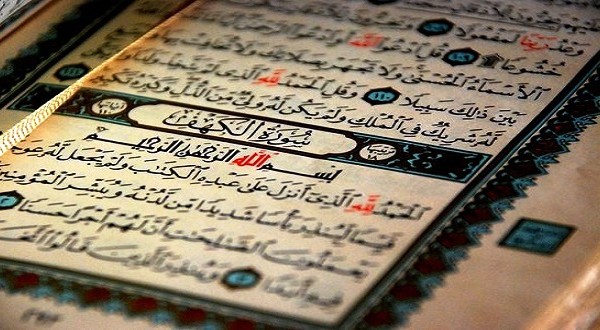 وَعْدُ رَبِّنَا لَمَفْعُولًا
خُشُوعًا ۩ ١٠٩ قُلِ ادْعُوا اللَّهَ
الْأَسْمَاءُ الْحُسْنَىٰ وَلَا تَجْهَرْ بِصَلَاتِكَ وَلَا تُخَافِتْ
بَيْنَ ذَٰلِكَ سَبِيلًا ١١٠ وَقُلِ الْحَمْدُ لِلَّهِ الَّذِي لَمْ يَتَّخِذْ وَلَدًا
لَّهُ شَرِيكٌ فِي الْمُلْكِ وَلَمْ يَكُن لَّهُ وَلِيٌّ مِّنَ الذُّلِّ وَكَبِّرْهُ تَكْبِيرًا
سُورَةُ الْكَهْفِ
بِسْمِ اللَّهِ الرَّحْمَٰنِ الرَّحِيمِ
الْحَمْدُ لِلَّهِ الَّذِي أَنزَلَ عَلَىٰ عَبْدِهِ الْكِتَٰبَ وَلَمْ يَجْعَل لَّهُ عِوَجَا
قَيِّمًا لِّيُنذِرَ بَأْسًا شَدِيدًا مِّن لَّدُنْهُ وَيُبَشِّرَ الْمُؤْمِنِينَ
يَعْمَلُونَ الصَّٰلِحَٰتِ أَنَّ لَهُمْ أَجْرًا حَسَنًا ٢
فِيهِ أَبَدًا ٣ وَيُنذِرَ الَّذِينَ قَالُوا اتَّخَذَ
٢٩٣